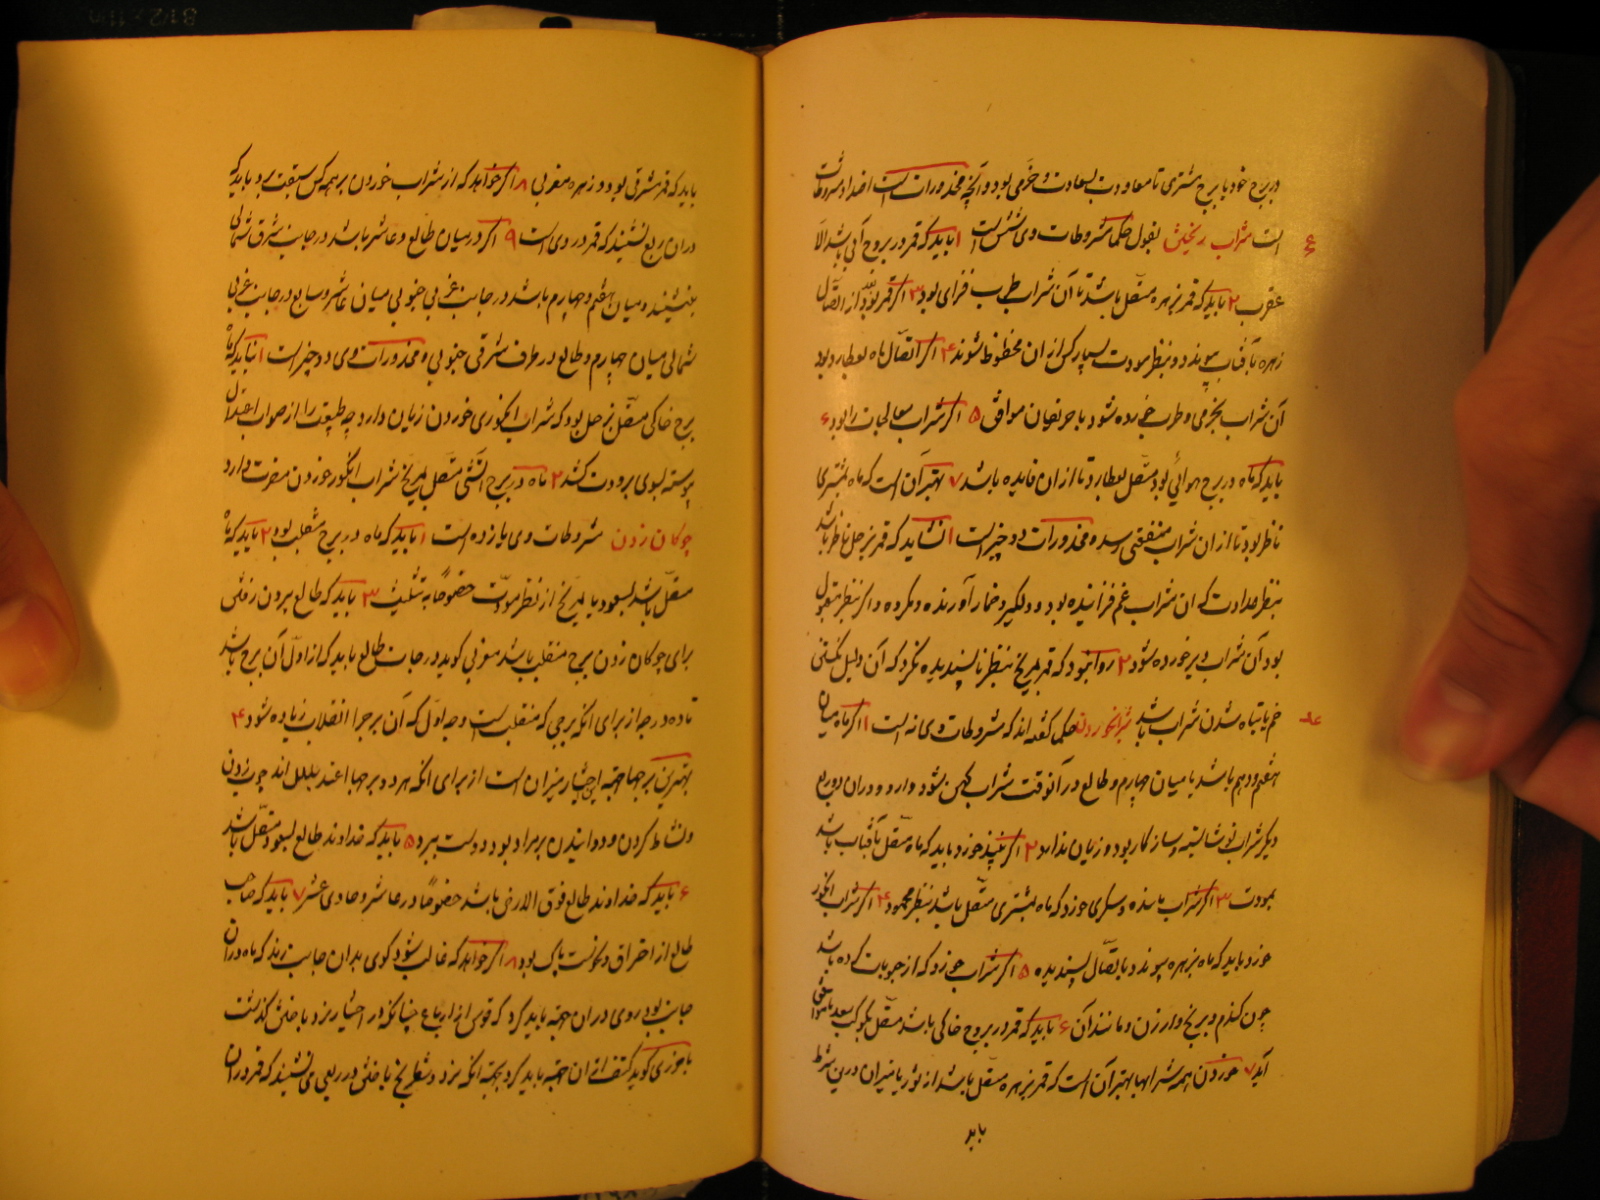 در برج خود یا برج مشتری تا معاودت بسعادت و خرمی بود و آنچه محذورات است اضداد مشروطات
است شراب ریختن بقول حکما مشروطات وی شش است ۱ باید که قمر در بروج آبی باشد الا
عقرب ۲ باید که قمر بزهره متصل باشد تا آن شراب طرب فزای بود ۳ اگر قمر بود از اتصال
زهره بآفتاب پیوندد و بنظر مودت بسیار کس از آن محظوظ شوند ۴ اگر اتصال ماه بعطارد بود
آن شراب بخرمی و طرب خورده شود با حریفان موافق ۵ اگر شراب معالجات را بود ۶
باید که ماه در برج هوائی بود متصل بعطارد تا از آن فایده باشد ۷ بهتر آن است که ماه بمشتری
ناظر بود تا از آن شراب منفعتی رسد و محذورات دو چیز است ۱ نشاید که قمر بزحل ناظر باشد
بنظر عداوت که آن شراب غم فزاینده بود و دلگیر و خمار آورنده و مکروه و اگر بنظر مقبول
بود آن شراب دیر خورده شود ۲ روا نبود که قمر بمریخ بنظر ناپسندیده نگرد که آن دلیل شکستن
خم یا تباه شدن شراب باشد شراب خوردن حکما گفته اند که مشروطات وی نه است ۱ اگر ماه میان
هفتم و دهم باشد یا میان چهارم و طالع در آنوقت شراب کهن شود دارد و در آن دو ربع
دیگر شراب نو شایسته و سازگار بود و زیان ندارد ۲ اگر نبیذ خورد باید که ماه متصل بآفتاب باشد
بمودت ۳ اگر شراب خورد که ماه بمشتری متصل باشد بنظر محمود ۴ اگر شراب انگور
خورد باید که ماه بزهره پیوندد باتصال پسندیده ۵ اگر شراب خورد که از حبوبات کرده باشد
چون گندم و برنج و ارزن و مانند آن ۶ باید که قمر در بروج خاکی باشد متصل بکوکب سعد تا موافق
آید ۷ خوردن همه شرابها بهتر آن است که قمر بزهره متصل باشد از ثور یا میزان درین شرط
باید
باید که قمر شرقی بود و زهره مغربی ۸ اگر خواهد که از شراب خوردن بر همه کس سبقت برد باید که
در آن ربع نشیند که قمر در وی است ۹ اگر در میان طالع و عاشر باشد در جانب شرق شمالی
بنشیند و میان هفتم و چهارم باشد در جانب غربی جنوبی میان عاشر و سابع در جانب غربی
شمالی میان چهارم و طالع در طرف شرقی جنوبی و محذورات وی دو چیز است ۱ نباید که ماه
برج خاکی متصل بزحل بود که شراب انگوری خوردن زیان دارد چه طبیعت را از صواب اعتدال
پیوسته بسوی برودت کشد ۲ ماه در برج آتشی متصل بمریخ شراب انگور خوردن مضرت دارد
چوگان زدن مشروطات وی یازده است ۱ باید که ماه در برج منقلب بود ۲ باید که ماه
متصل باشد بسعود یا بمریخ از نظر مودت خصوصا به تثلیث ۳ باید که طالع بیرون رفتن
برای چوگان زدن برج منقلب باشد مغربی گوید درجات طالع باید که از اول آن برج باشد
تا ده درجه از برای آنکه برجی که منقلب است وجه اول که آن برج را انقلاب زیاده شود ۴
بهترین برجها جهت این اختیار میزان است از برای آنکه هر دو برجها اعتدال اند چوگان زدن
و نشاط کردن و دوانیدن بر مراد بود و دست ببرد ۵ باید که خداوند طالع بسعود متصل باشد
۶ باید که خداوند طالع فوق الارض باشد خصوصا در عاشر و حادی عشر ۷ باید که صاحب
طالع از احتراق و نحوست پاک بود ۸ اگر خواهد که غالب شود گوی بدان جانب زند که ماه در آن
جانب بود روی در آن جهت باید کرد که قوس از ارتفاع چنانکه در اختیار نرد باختن گذشت
باخرزی گوید کتف از آن جهت باید کرد بجهت آنکه نرد و شطرنج باختن در ربعی می نشیند که قمر در آن